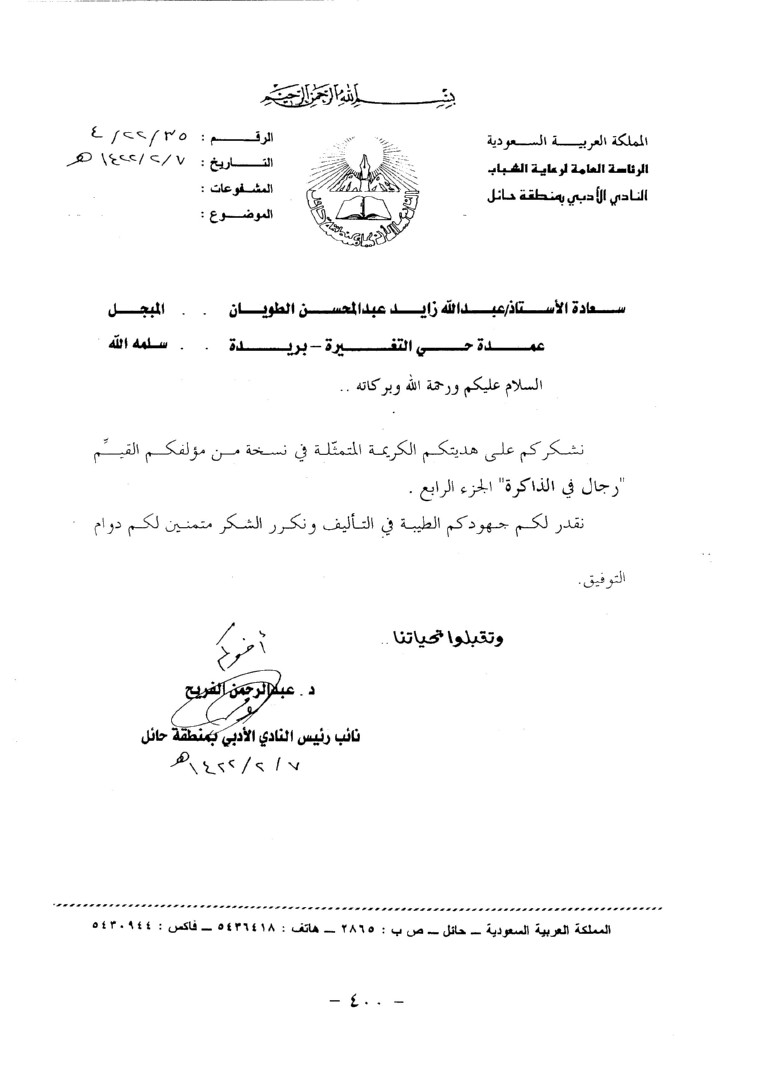 بسم الله الرحمن الرحيم
المملكة العربية السعودية
الرئاسة العامة لرعاية الشباب
النادي الأدبي بمنطقة حائل
الرقم : ٤/٢٢/٣٥
التاريخ : ١٤٢٢/٢/٧ هـ
المشفوعات :
الموضوع :
سعادة الأستاذ/عبدالله زايد عبدالمحسن الطويان . . المبجل
عمدة حي التغيرة – بريدة . . سلمه الله
السلام عليكم ورحمة الله وبركاته ..
نشكركم على هديتكم الكريمة المتمثّلة في نسخة من مؤلفكم القيّم
"رجال في الذاكرة" الجزء الرابع .
نقدر لكم جهودكم الطيبة في التأليف ونكرر الشكر متمنين لكم دوام
التوفيق.
وتقبلوا تحياتنا ..
أخوكم
د . عبدالرحمن الفريح
نائب رئيس النادي الأدبي بمنطقة حائل
١٤٢٢/٢/٧هـ
المملكة العربية السعودية ــ حائل ــ ص ب : ٢٨٦٥ ــ هاتف : ٥٤٣٦٤١٨ ــ فاكس : ٥٤٣٠٩٤٤
– ٤٠٠ –